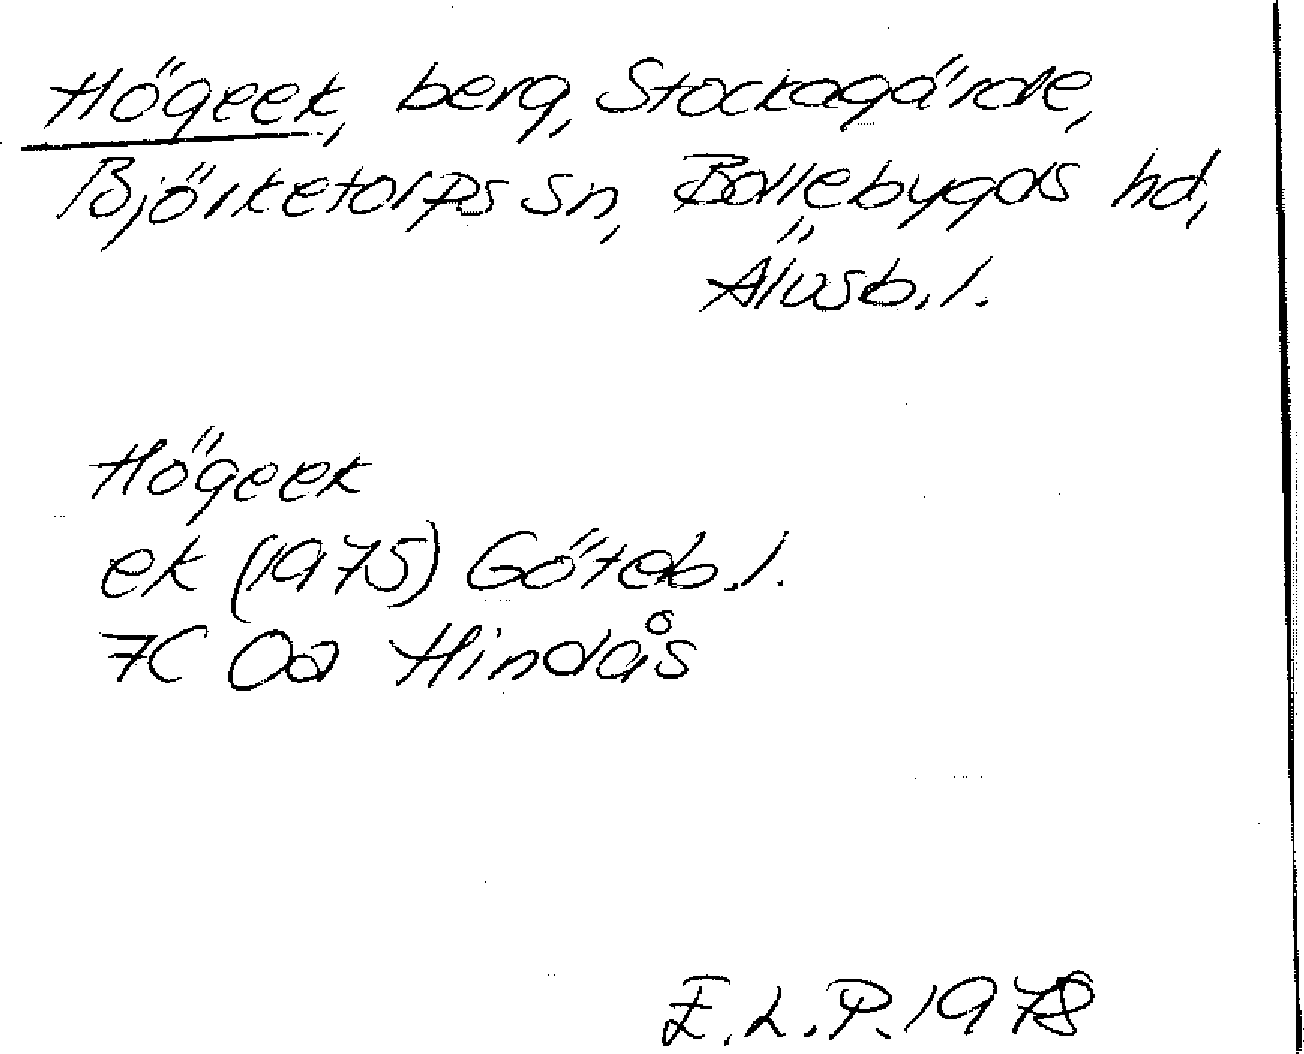 Högeek, berg, Stockagärde,
Björketorps sn, Bollebygds hd,
Älvsb. l.
Högeek
ek (1975) Göteb. l.
7C 0a Hindås
E. L. P. 1978